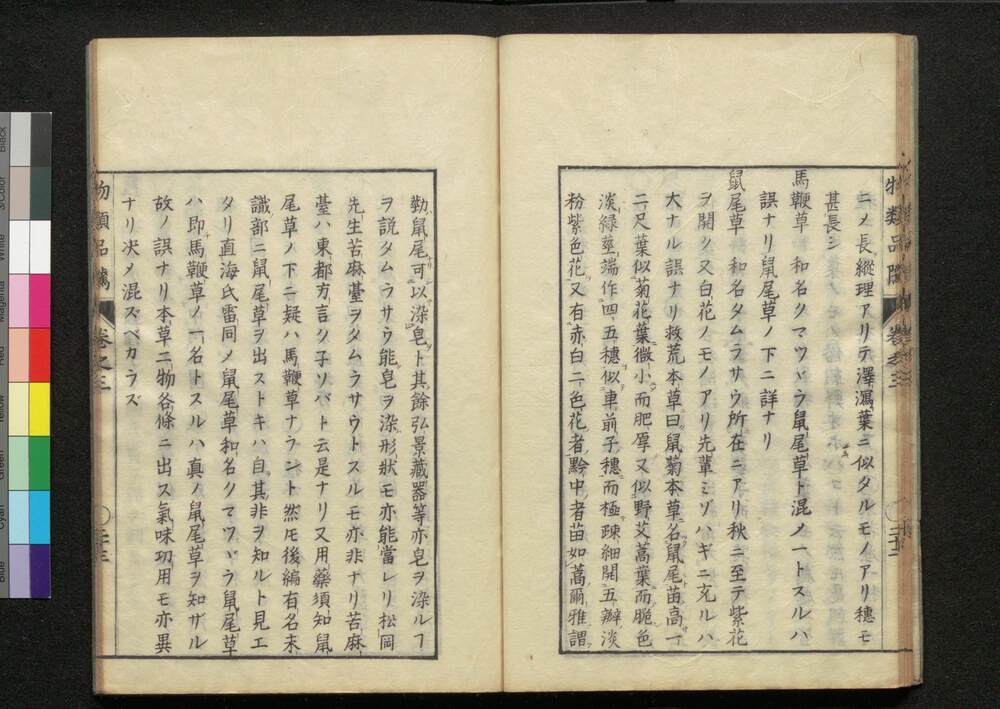 ニメ長縦理アリテ澤瀉葉ニ似タルモノアリ穂モ
甚長シ
馬鞭草 和名クマツヾラ鼠尾草ト混メ一トスルハ
誤ナリ鼠尾草ノ下ニ詳ナリ
鼠尾草 和名タムラサウ所在ニアリ秋ニ至テ紫花
ヲ開ク又白花ノモノアリ先輩ミゾハギニ充ルハ
大ナル誤ナリ救荒本草曰鼠菊本草名鼠尾苗高一
二尺葉似菊花葉微小而肥厚又似野艾蒿葉而脆色
淡緑莖端作四五穗似車前子穗而極疎細開五瓣淡
粉紫色花又有赤白二色花者黔中者苗如蒿爾雅謂
物類品隲 巻之三
勤鼠尾可以染皂ト其餘弘景藏器等亦皂ヲ染ルヿ
ヲ說タムラサウ能皂ヲ染形狀モ亦能當レリ松岡
先生苦麻薹ヲタムラサウトスルモ亦非ナリ苦麻
薹ハ東都方言クチソバト云是ナリ又用藥須知鼠
尾草ノ下ニ疑ハ馬鞭草ナラント然モ後編有名未
識部ニ鼠尾草ヲ出ストキハ自其非ヲ知ルト見エ
タリ直海氏雷同メ鼠尾草和名クマツヾラ鼠尾草
ハ即馬鞭草ノ一名トスルハ真ノ鼠尾草ヲ知ザル
故ノ誤ナリ本草二物各條ニ出ス氣味功用モ亦異
ナリ决メ混ズベカラズ
物類品隲 巻之三
Black
3/Color
White
Magenta
Red
Yellow
Green
Cyan
Blue